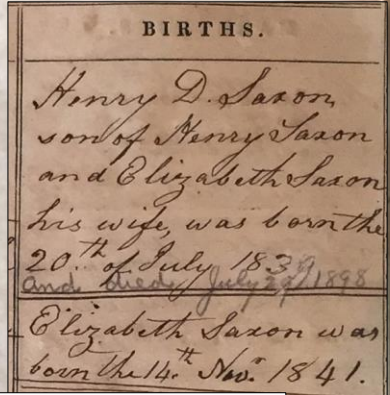 BIRTHS.
Henry D. Saxon,
son of Henry Saxon
and Elizabeth Saxon
his wife, was born the
20th of July 1839
and died July 1898
Elizabeth Saxon was
born the 14th Novr 1841.